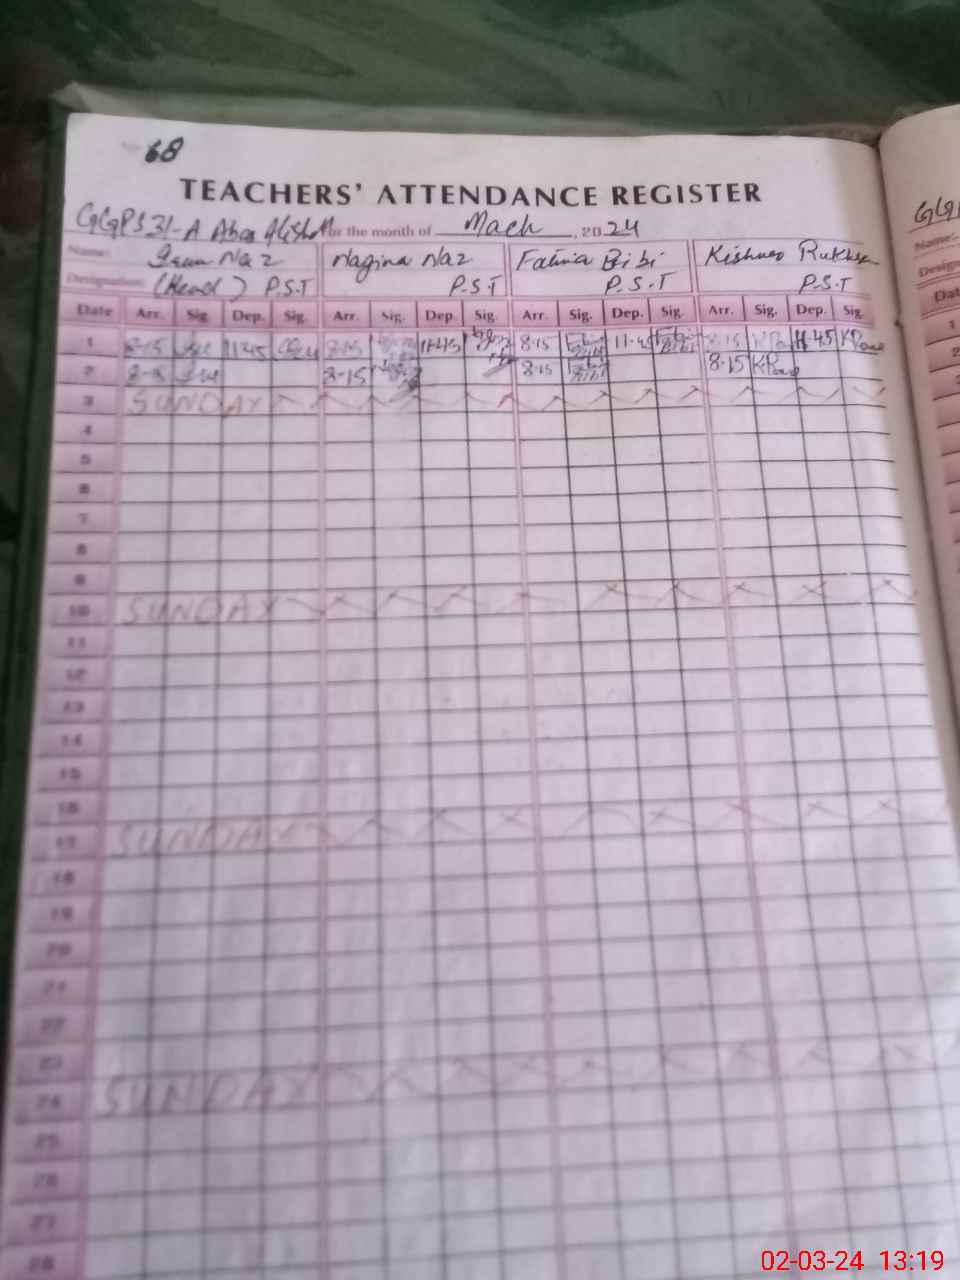 68
TEACHERS' ATTENDANCE REGISTER
GGPS 31-A for the month of Mach, 2024
Name: Naz Nagina Naz Fatima Bibi Kishwar
Designation: (Head) P.S.T P.S.T P.S.T P.S.T
Date Arr. Sig. Dep. Sig. Arr. Sig. Dep. Sig. Arr. Sig. Dep. Sig. Arr. Sig. Dep. Sig.
1 8-15 11-45 8-15 11-45 8-15 11-45 8-15 11-45
2 8-15 8-15 8-15 8-15
3 SUNDAY
4
5
6
7
8
9
10 SUNDAY
11
12
13
14
15
16
17 SUNDAY
18
19
20
21
22
23
24 SUNDAY
25
26
27
28
GG
Name:-
Design
Dat
1
2
02-03-24 13:19